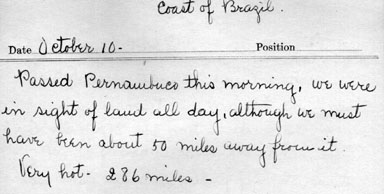 Coast of Brazil.
Date October 10- Position
Passed Pernambuco this morning, we were
in sight of land all day, although we must
have been about 50 miles away from it.
Very hot- 286 miles -